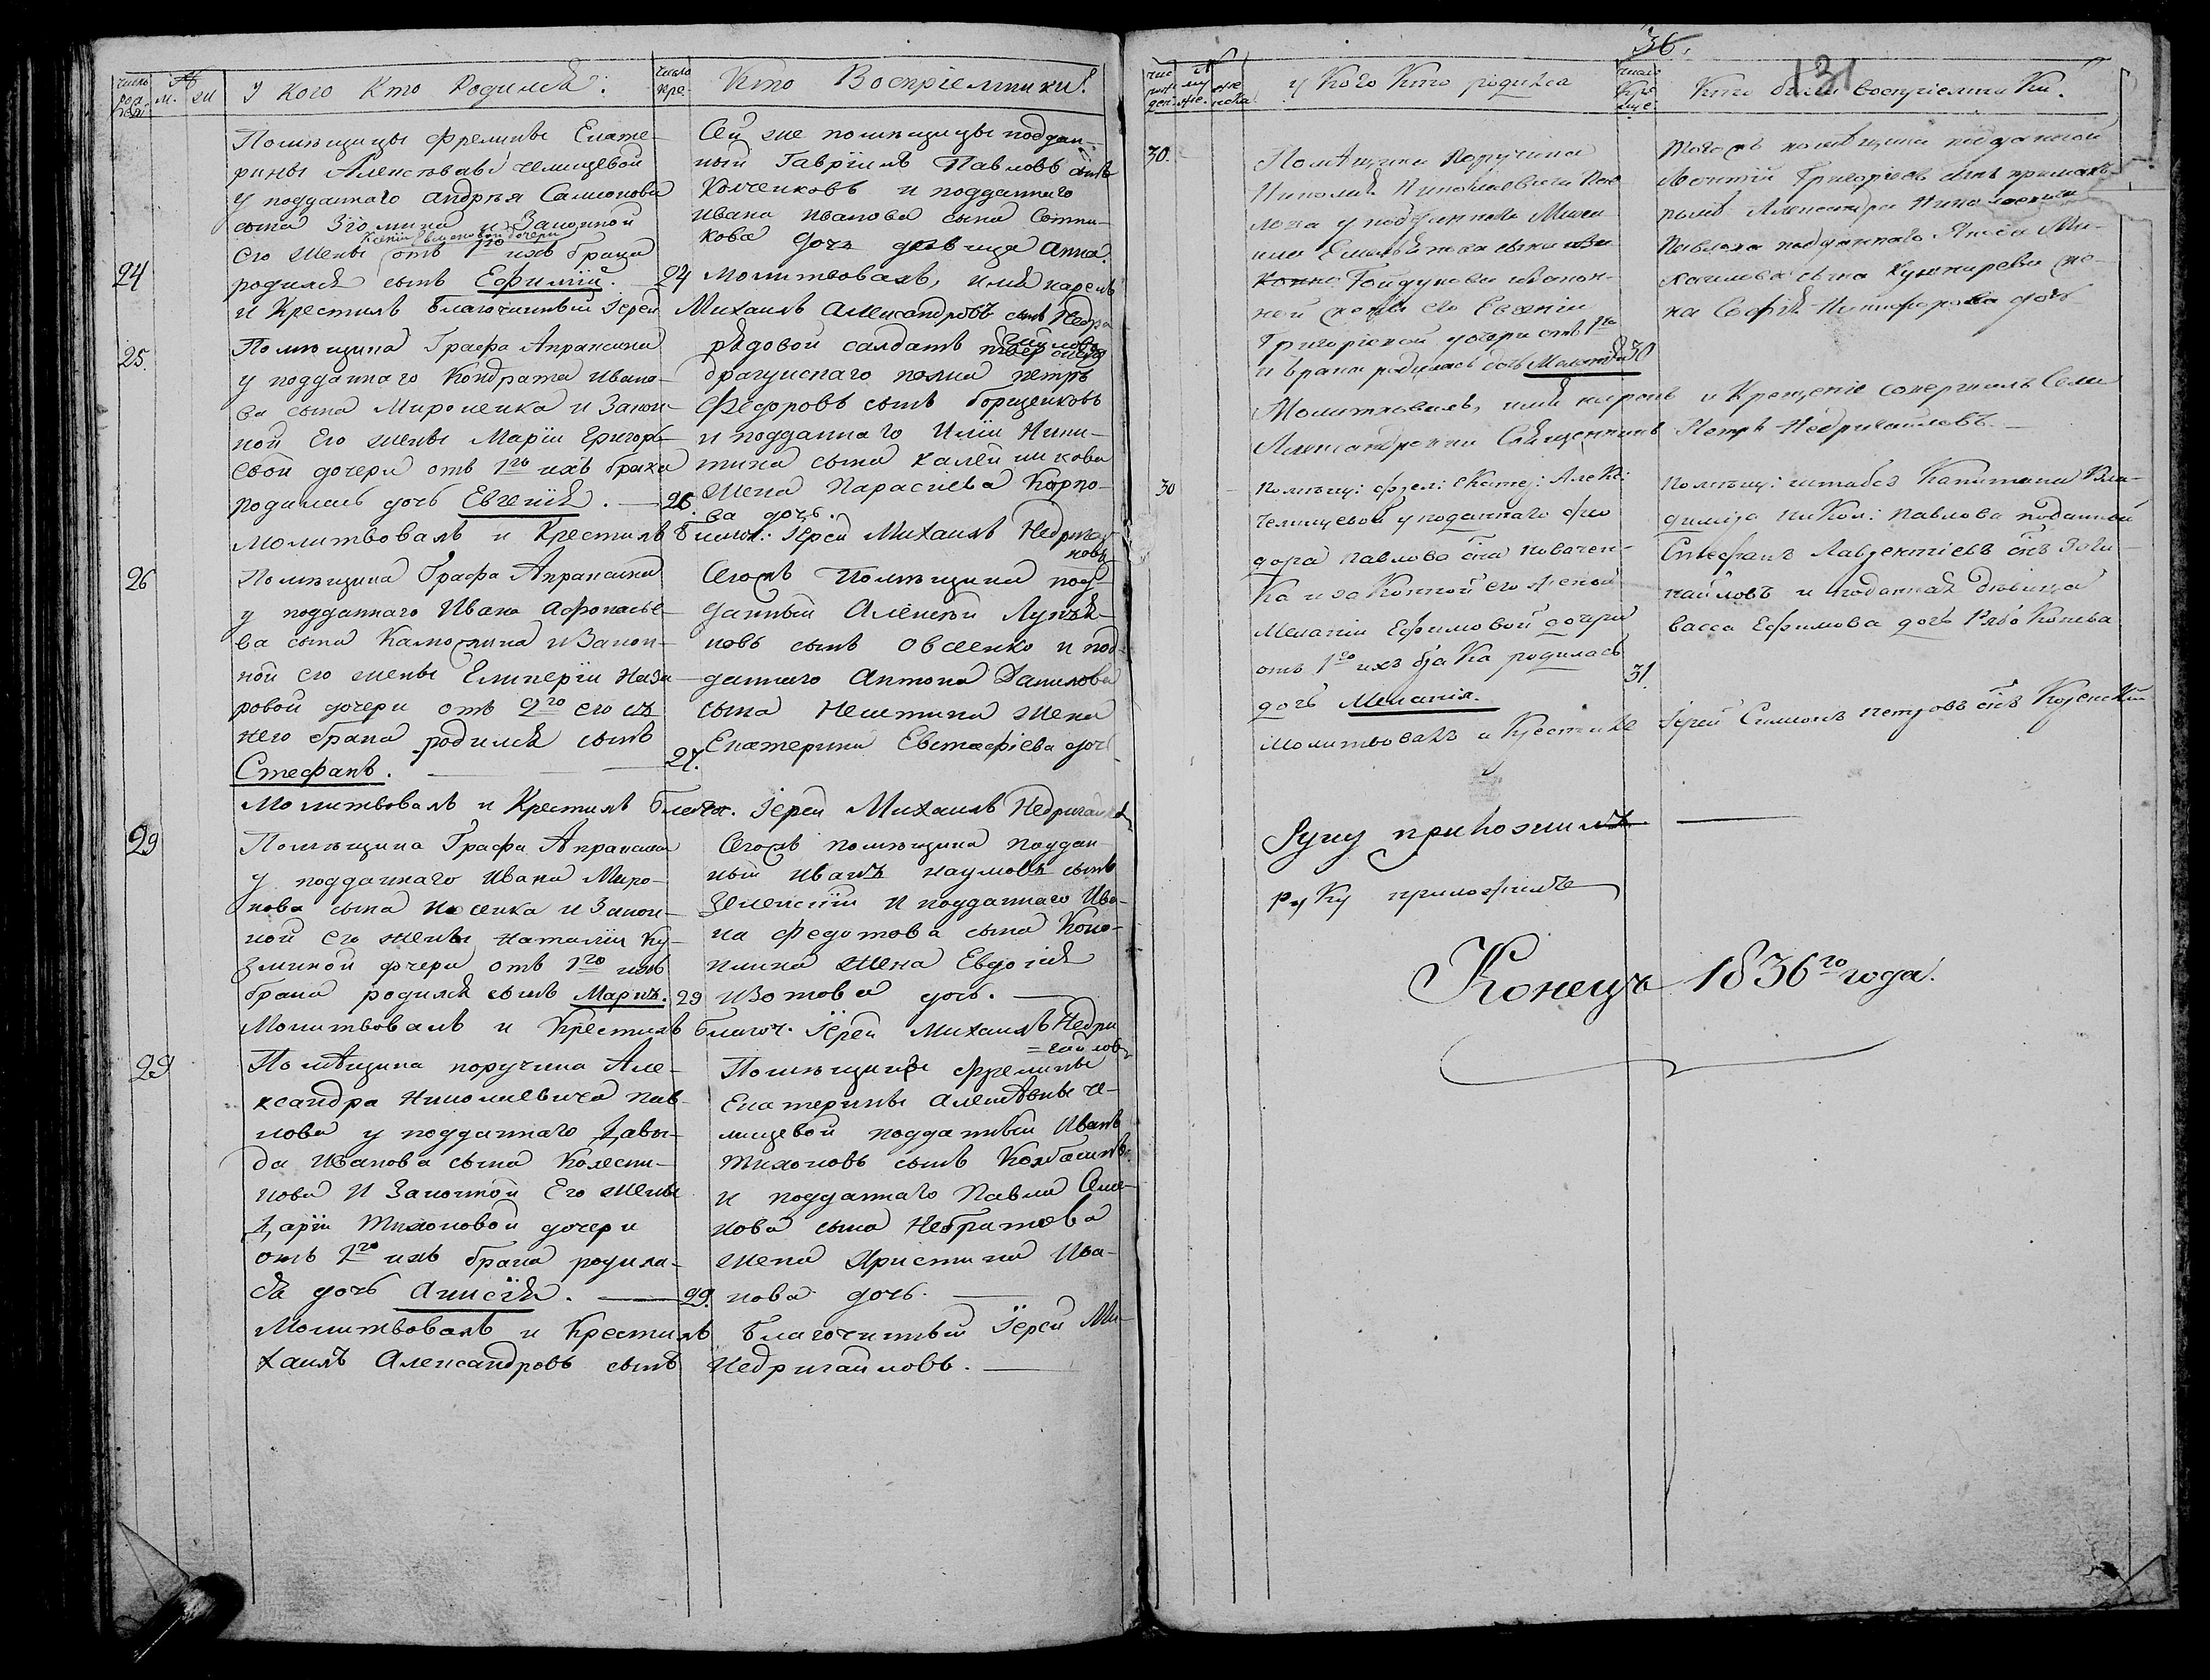 число рож. №
м. ж
У Кого Кто Родился:
число кре-
Кто Воспріемники:
Помѣщицы Фрелины Екате-
рины Алексѣевы Челищевой
у подданнаго Андрѣя Самсонова
сына и Законной
Его жены
Ксеніи дочери
отъ 1го ихъ брака
24
родился сынъ Ефимій. — 24
и Крестилъ Благочинный Іерей
Сей же помѣщицы поддан-
ный Гавріилъ Павловъ сынъ
Колченковъ и подданнаго
Ивана Иванова сына Сотни-
кова дочь дѣвица Анна.
Молитвовалъ, имя нарекъ
Михаилъ Александровъ сынъ Недри
гайловъ
25.
Помѣщика Графа Апраксина
у подданнаго Кондрата Ивано-
ва сына Мироненка и Закон-
ной Его жены Маріи Григорь-
евой дочери отъ 1го ихъ брака
родилась дочь Евгенія. — 26.
рядовой салдатъ
драгунскаго полка Петръ
Федоровъ сынъ Борщенковъ
и подданнаго Иліи Ники-
тина сына Калейникова
жена Параскева Карпо-
ва дочь.
Молитвовалъ и Крестилъ благоч: Іерей Михаилъ Недригай
ловъ
26
Помѣщика Графа Апраксина
у подданнаго Ивана Афонасье-
ва сына и Закон-
ной его жены Еликеріи Наза-
ровой дочери отъ 2го его съ
нею брака родился сынъ
Стефанъ. — 27.
Тогожъ Помѣщика под-
данный Алексѣй Лукья-
новъ сынъ Овсенко и под-
даннаго Антона Данилова
сына жена
Екатерина Евстафіева дочь
Молитвовалъ и Крестилъ Благоч. Іерей Михаилъ Недригайловъ
29
Помѣщика Графа Апраксина
у подданнаго Ивана Миро-
нова сына и Закон-
ной Его жены Наталіи Ку-
зминой дочери отъ 1го ихъ
брака родился сынъ Маркъ. 29
Тогожъ помѣщика поддан-
ный Иванъ Наумовъ сынъ
Зеленскій и подданнаго Ива-
на Федотова сына Коно-
плина жена Евдокія
Изотова дочь. —
Молитвовалъ и Крестилъ благоч. Іерей Михаилъ Недри
=гайловъ
29
Помѣщика поручика Але-
ксандра Николаевича Пав-
лова у подданнаго Давы-
да Иванова сына Колесни-
кова и Законной Его жены
Даріи Тихоновой дочери
отъ 1го ихъ брака родила-
ся дочь Анисія. — 29.
Помѣщицы Фрелины
Екатерины Алексѣвны Че-
лищевой подданный Иванъ
Тихоновъ сынъ Колбасинъ
и подданнаго Павла Семе-
нова сына Небратова
жена Христина Ива-
нова дочь. —
Молитвовалъ и Крестилъ Благочинный Іерей Ми-
хаилъ Александровъ сынъ Недригайловъ. —
36.
131
у Кого Кто родился
Кто были воспріемники.
30.
Помѣщика Поручика
Николая Николаевича Пав-
лова у подданнаго Миха-
ила Емельянова сына
Гайдукова и Закон-
ной жены его Евгеніи
Григорьевой дочери отъ 1го
и брака родилась дочь Меланія 30
тогожъ помѣщика подданный
Леонтій Григорьевъ сынъ
Александра Николаевича
Павлова подданнаго Якова Ми-
хаилова сына Кушнирева же-
на Софія Никифорова дочь
Молитвовалъ, имя нарекъ и Крещеніе совершилъ Села
Александровки Священникъ Петръ Недригайловъ. —
30
Помѣщ: фрел: Екатер: Алекс:
Челищевой у поданнаго Фео
дора Павлова сна
и законной его женой
Меланіи Ефимовой дочери
отъ 1го ихъ брака родилась
31.
дочь Меланія.
помѣщ: штабсъ Капитана Вла-
диміра Никол: Павлова поданный
Стефанъ Лаврентіевъ снъ
и поданная дѣвица
Васса Ефимова дочь Рябоконева
Молитвовалъ и Крестилъ Іерей Симонъ Петровъ снъ
Руку приложилъ —
руку приложилъ
Конецъ 1836го года.